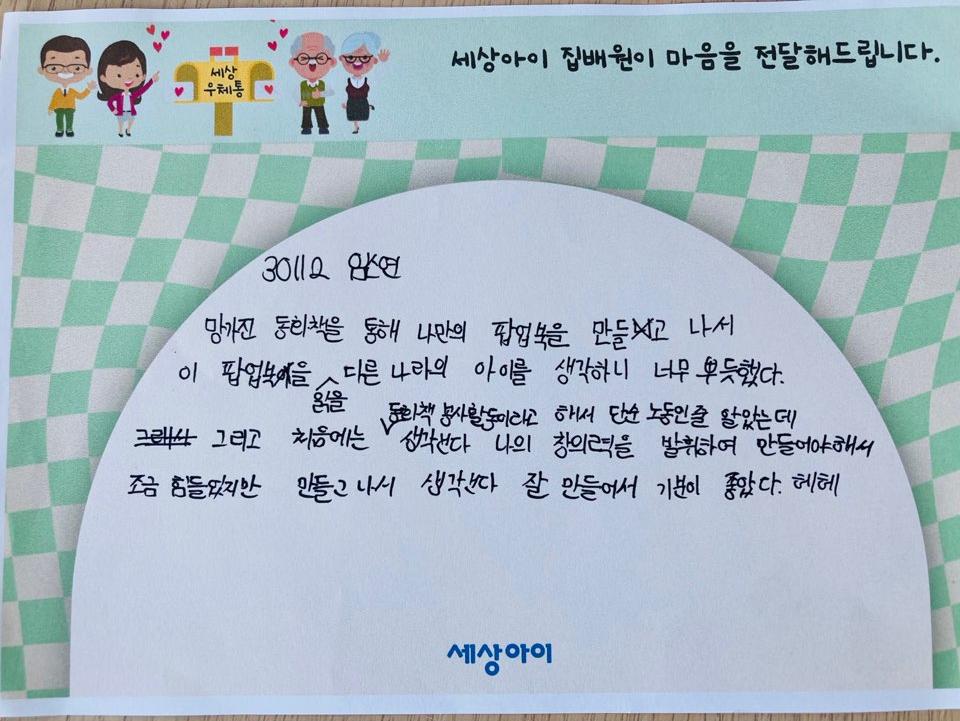 세상
우체통
세상아이 집배원이 마음을 전달해드립니다.
30112 임소연
망가진 동화책을 통해 나만의 팝업북을 만들고 나서
이 팝업북을 읽을 다른 나라의 아이를 생각하니 너무 뿌듯했다.
동화책 봉사활동이라고 해서 단순 노동인줄 알았는데
그래서 그리고 처음에는 생각보다 나의 창의력을 발휘하여 만들어야해서
조금 힘들었지만 만들고 나서 생각보다 잘 만들어서 기분이 좋았다. 헤헤
세상아이